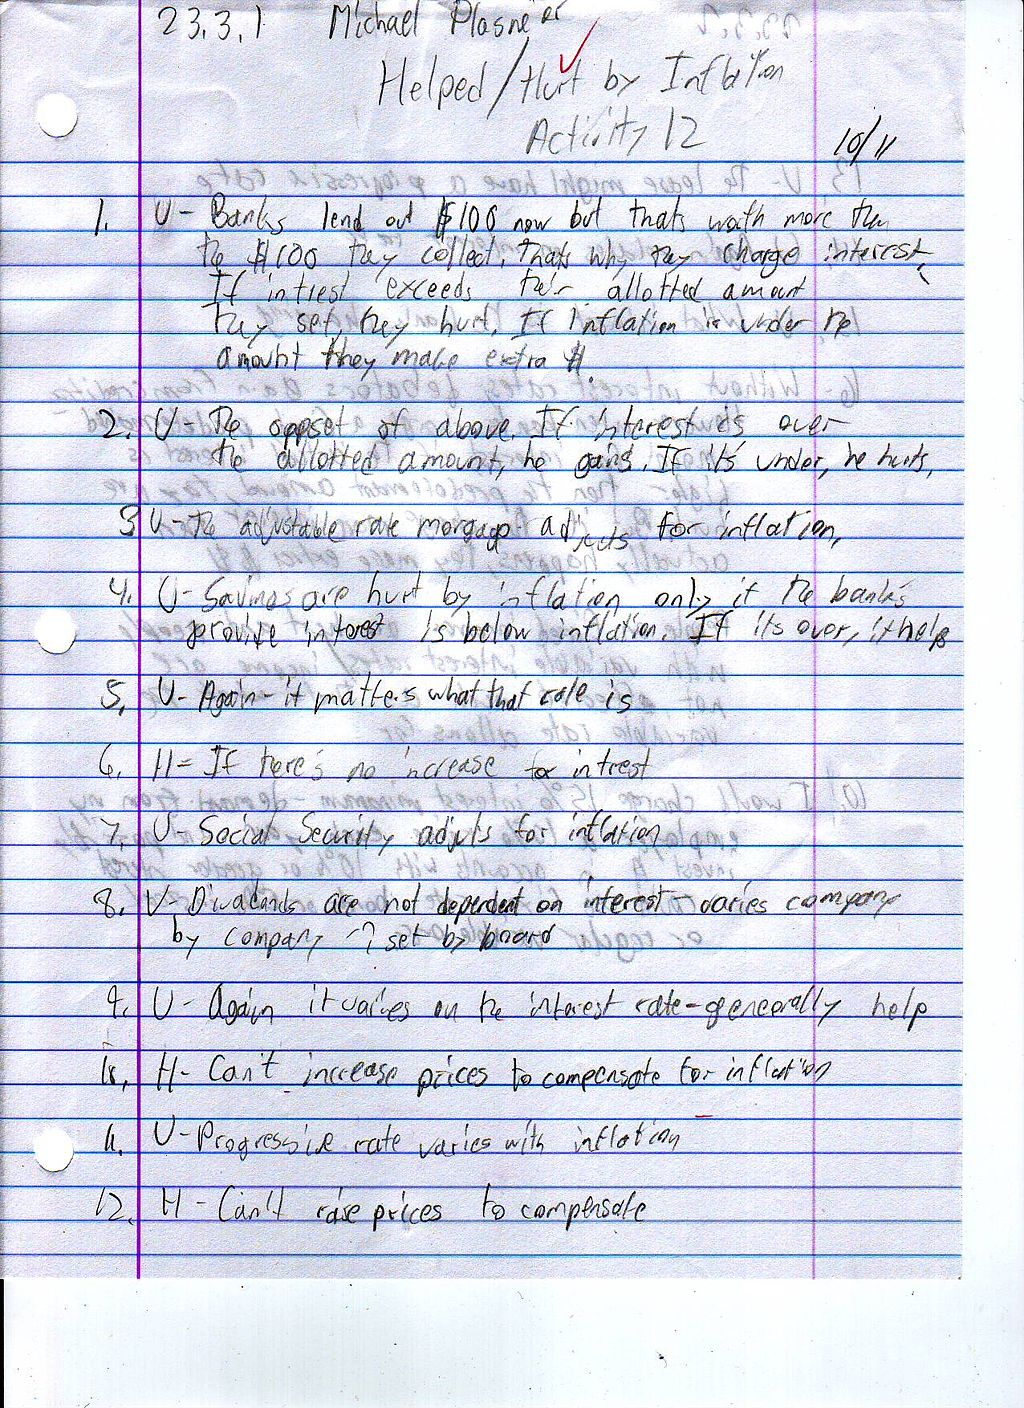 23.3.1 Michael Plasner
Helped/Hurt by Inflation
Activity 12
10/11
1. U - Banks lend out $100 now but thats worth more then
the $100 they collect, thats why they charge interest.
If intrest exceeds their allotted amount
they set, they hurt. If inflation is under the
amount they make extra $.
2. U - The oppset of above. If interest is over
the allotted amount, he gains. If it's under, he hurts.
3 U - The adjustable rate morgage adjects for inflation.
4. U - Savings are hurt by inflation only if the banks
provide interest is below inflation. If its over, it help
5. U - Again - it matters what that rate is
6. H = If there's no increase for intrest
7. U - Social Security adjuts for inflation
8. U - Dividends are not dependent on interest - varies company
by company set by board
9. U - Again it varies on the interest rate - generally help
10. H - Can't increase prices to compensate for inflation
11. U - Progressive rate varies with inflation
12. H - Can't raise prices to compensate